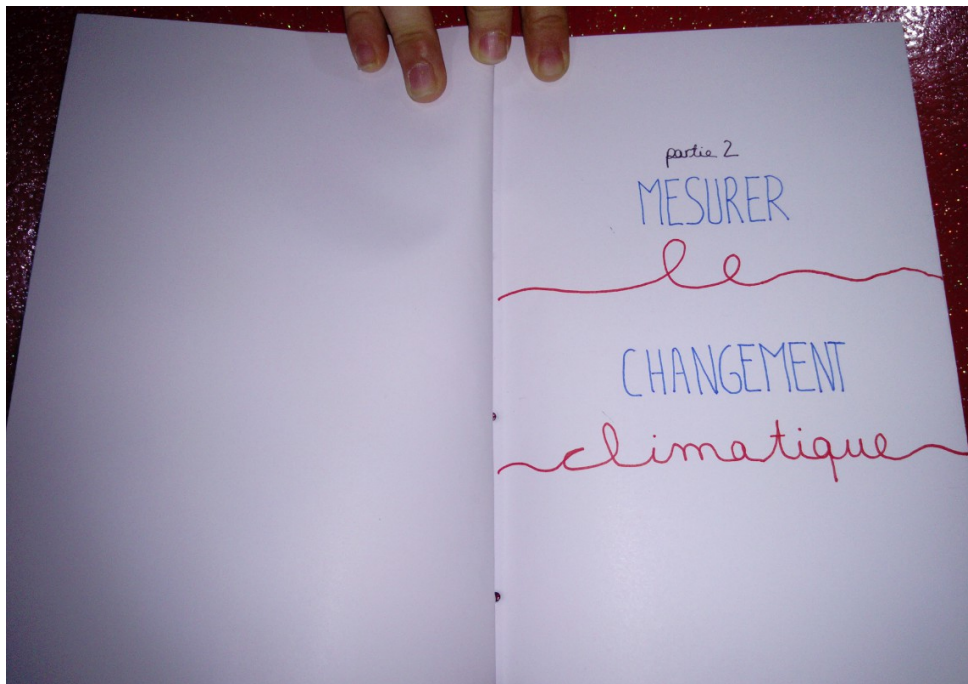 partie 2
MESURER
le
CHANGEMENT
climatique